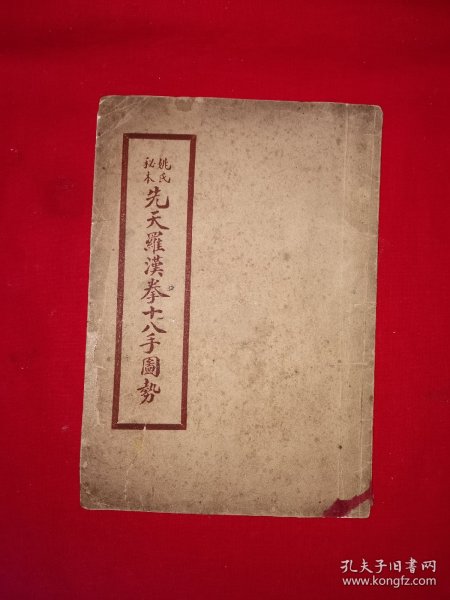 姚氏
秘本
先天羅漢拳十八手圖勢
孔夫子旧书网
www.kongfz.com